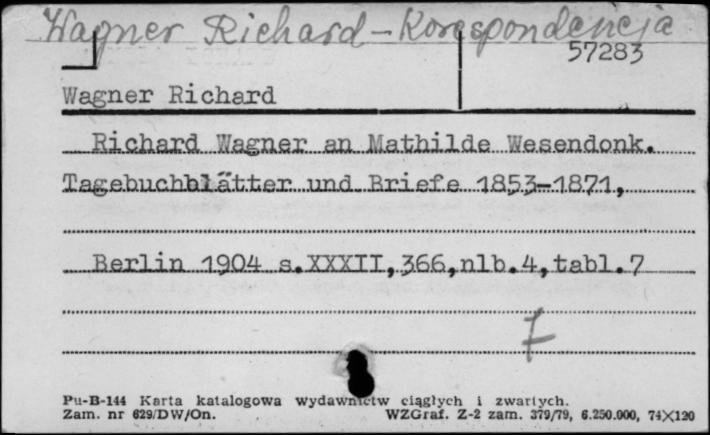 Wagner Richard – Korespondencja
57283
Wagner Richard
Richard Wagner an Mathilde Wesendonk.
Tagebuchblätter und Briefe 1853-1871,
Berlin 1904 s.XXXII,366,nlb.4,tabl.7
7
Pu-B-144 Karta katalogowa wydawnictw ciągłych i zwartych.
Zam. nr 629/DW/On. WZGraf. Z-2 zam. 379/79, 6.250.000, 74×120